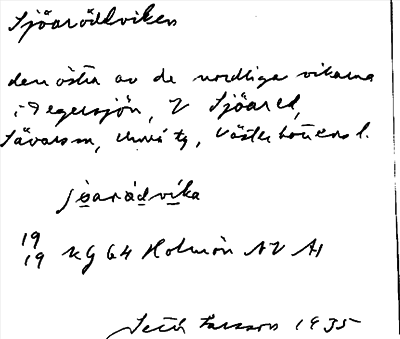 Sjöarödviken
den östra av de nordliga vikarna
i Tegersjön, V Sjöared,
Sävars sn, Umeå tg, Västerbottens l.
jøarødvika
19
19 kg 64 Holmön NV
Seth Larsson 1935